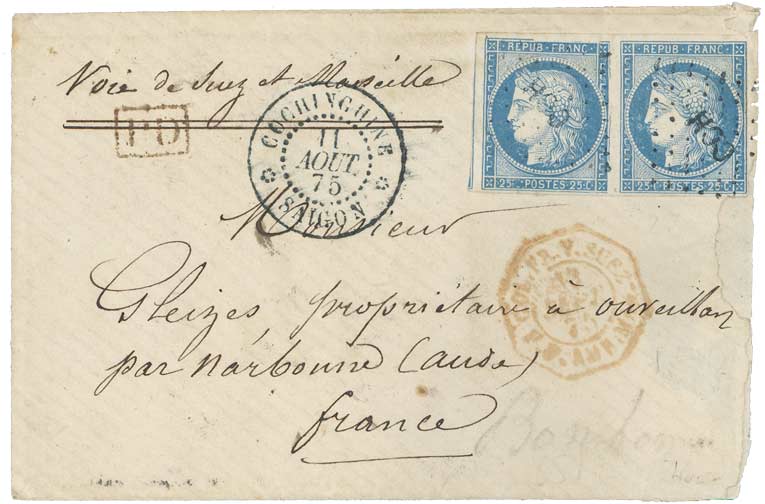 REPUB. FRANC. REPUB. FRANC.
25c POSTES 25c 25c POSTES 25c
Voie de Suez et Marseille
PD
COCHINCHINE
11
AOUT
75
SAIGON
Monsieur
Gleizes, propriétaire à ouveillan
par Narbonne (aude)
france
V. SUEZ